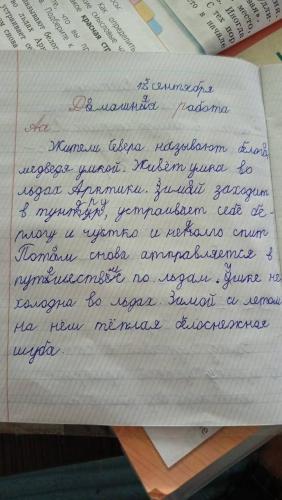 18 сентября
Домашняя работа
Аа
Жители Севера называют белого
медведя умкой. Живёт умка во
льдах Арктики. Зимой заходит
в тундру, устраивает себе бе-
рлогу и чутко и недолго спит.
Потом снова отправляется в
путешествие по льдам. Умке не
холодно во льдах. Зимой и летом
на нём тёплая белоснежная
шуба.